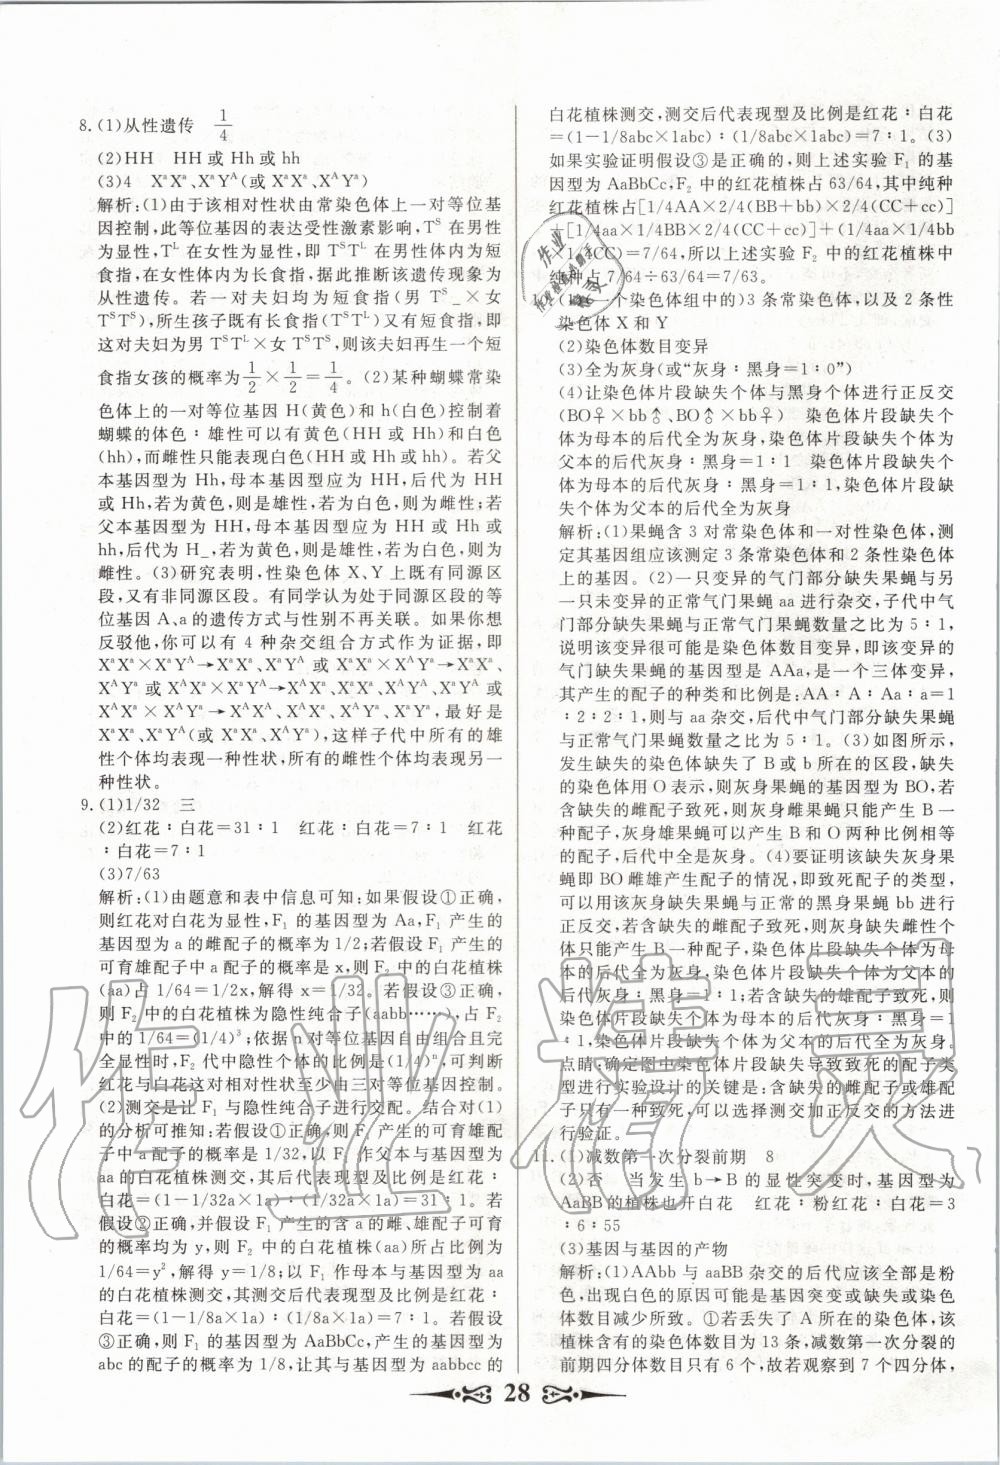 8.(1)从性遗传 1/4
(2)HH HH或Hh或hh
(3)4 XᵃXᵃ、XᵃYᴬ(或XᵃXᵃ、XᴬYᵃ)
解析:(1)由于该相对性状由常染色体上一对等位基
因控制,此等位基因的表达受性激素影响,Tˢ在男性
为显性,Tᴸ在女性为显性,即TˢTᴸ在男性体内为短
食指,在女性体内为长食指,据此推断该遗传现象为
从性遗传。若一对夫妇均为短食指(男Tˢ_×女
TˢTˢ),所生孩子既有长食指(TˢTᴸ)又有短食指,即
这对夫妇为男TˢTᴸ×女TˢTˢ,则该夫妇再生一个短
食指女孩的概率为1/2×1/2=1/4。(2)某种蝴蝶常染
色体上的一对等位基因H(黄色)和h(白色)控制着
蝴蝶的体色:雄性可以有黄色(HH或Hh)和白色
(hh),而雌性只能表现白色(HH或Hh或hh)。若父
本基因型为Hh,母本基因型应为HH,后代为HH
或Hh,若为黄色,则是雄性,若为白色,则为雌性;若
父本基因型为HH,母本基因型应为HH或Hh或
hh,后代为H_,若为黄色,则是雄性;若为白色,则为
雌性。(3)研究表明,性染色体X、Y上既有同源区
段,又有非同源区段。有同学认为处于同源区段的等
位基因A、a的遗传方式与性别不再关联。如果你想
反驳他,你可以有4种杂交组合方式作为证据,即
XᵃXᵃ×XᵃYᴬ→XᵃXᵃ、XᵃYᴬ或XᵃXᵃ×XᴬYᵃ→XᵃXᵃ、
XᴬYᵃ或XᴬXᵃ×XᵃYᴬ→XᴬXᵃ、XᵃXᵃ、XᴬYᴬ、XᵃYᴬ或
XᴬXᵃ×XᴬYᵃ→XᴬXᴬ、XᴬXᵃ、XᴬYᵃ、XᵃYᵃ,最好是
XᵃXᵃ、XᵃYᴬ(或XᵃXᵃ、XᴬYᵃ),这样子代中所有的雄
性个体均表现一种性状,所有的雌性个体均表现另一
种性状。
9.(1)1/32 三
(2)红花∶白花=31∶1 红花∶白花=7∶1 红花
∶白花=7∶1
(3)7/63
解析:(1)由题意和表中信息可知:如果假设①正确,
则红花对白花为显性,F₁的基因型为Aa,F₁产生的
基因型为a的雌配子的概率为1/2;若假设F₁产生的
可育雄配子中a配子的概率是x,则F₂中的白花植株
(aa)占1/64=1/2x,解得x=1/32。若假设③正确,
则F₂中的白花植株为隐性纯合子(aabb……),占F₂
中的1/64=(1/4)³;依据n对等位基因自由组合且完
全显性时,F₂代中隐性个体的比例是(1/4)ⁿ,可判断
红花与白花这对相对性状至少由三对等位基因控制。
(2)测交是让F₁与隐性纯合子进行交配。结合对(1)
的分析可推知:若假设①正确,则F₁产生的可育雄配
子中a配子的概率是1/32,以F₁作父本与基因型为
aa的白花植株测交,其后代表现型及比例是红花∶
白花=(1-1/32a×1a)∶(1/32a×1a)=31∶1。若
假设②正确,并假设F₁产生的含a的雌、雄配子可育
的概率均为y,则F₂中的白花植株(aa)所占比例为
1/64=y²,解得y=1/8;以F₁作母本与基因型为aa
的白花植株测交,其测交后代表现型及比例是红花∶
白花=(1-1/8a×1a)∶(1/8a×1a)=7∶1。若假设
③正确,则F₁的基因型为AaBbCc,产生的基因型为
abc的配子的概率为1/8,让其与基因型为aabbcc的
白花植株测交,测交后代表现型及比例是红花∶白花
=(1-1/8abc×1abc)∶(1/8abc×1abc)=7∶1。(3)
如果实验证明假设③是正确的,则上述实验F₁的基
因型为AaBbCc,F₂中的红花植株占63/64,其中纯种
红花植株占[1/4AA×2/4(BB+bb)×2/4(CC+cc)]
+[1/4aa×1/4BB×2/4(CC+cc)]+(1/4aa×1/4bb
×1/4CC)=7/64,所以上述实验F₂中的红花植株中
纯种占7/64÷63/64=7/63。
(1)(一个染色体组中的)3条常染色体,以及2条性
染色体X和Y
(2)染色体数目变异
(3)全为灰身(或“灰身∶黑身=1∶0”)
(4)让染色体片段缺失个体与黑身个体进行正反交
(BO♀×bb♂、BO♂×bb♀) 染色体片段缺失个
体为母本的后代全为灰身,染色体片段缺失个体为
父本的后代灰身∶黑身=1∶1 染色体片段缺失个
体为母本的后代灰身∶黑身=1∶1,染色体片段缺
失个体为父本的后代全为灰身
解析:(1)果蝇含3对常染色体和一对性染色体,测
定其基因组应该测定3条常染色体和2条性染色体
上的基因。(2)一只变异的气门部分缺失果蝇与另
一只未变异的正常气门果蝇aa进行杂交,子代中气
门部分缺失果蝇与正常气门果蝇数量之比为5∶1,
说明该变异很可能是染色体数目变异,即该变异的
气门缺失果蝇的基因型是AAa,是一个三体变异,
其产生的配子的种类和比例是:AA∶A∶Aa∶a=1
∶2∶2∶1,则与aa杂交,后代中气门部分缺失果蝇
与正常气门果蝇数量之比为5∶1。(3)如图所示,
发生缺失的染色体缺失了B或b所在的区段,缺失
的染色体用O表示,则灰身果蝇的基因型为BO,若
含缺失的雌配子致死,则灰身雌果蝇只能产生B一
种配子,灰身雄果蝇可以产生B和O两种比例相等
的配子,后代中全是灰身。(4)要证明该缺失灰身果
蝇即BO雌雄产生配子的情况,即致死配子的类型,
可以用该缺失灰身果蝇与正常的黑身果蝇bb进行
正反交,若含缺失的雌配子致死,则灰身缺失雌性个
体只能产生B一种配子,染色体片段缺失个体为母本
的后代全为灰身,染色体片段缺失个体为父本的后
代灰身∶黑身=1∶1;若含缺失的雄配子致死,则
染色体片段缺失个体为母本的后代灰身∶黑身=1
∶1,染色体片段缺失个体为父本的后代全为灰身。
点睛:确定图中染色体片段缺失导致致死的配子类
型进行实验设计的关键是:含缺失的雌配子或雄配
子只有一种致死,可以选择测交加正反交的方法进
行验证。
11.(1)减数第一次分裂前期 8
(2)否 当发生b→B的显性突变时,基因型为
AaBB的植株也开白花 红花∶粉红花∶白花=3
∶6∶55
(3)基因与基因的产物
解析:(1)AAbb与aaBB杂交的后代应该全部是粉
色,出现白色的原因可能是基因突变或缺失或染色
体数目减少所致。①若丢失了A所在的染色体,该
植株含有的染色体数目为13条,减数第一次分裂的
前期四分体数目只有6个,故若观察到7个四分体,
28
作业精灵